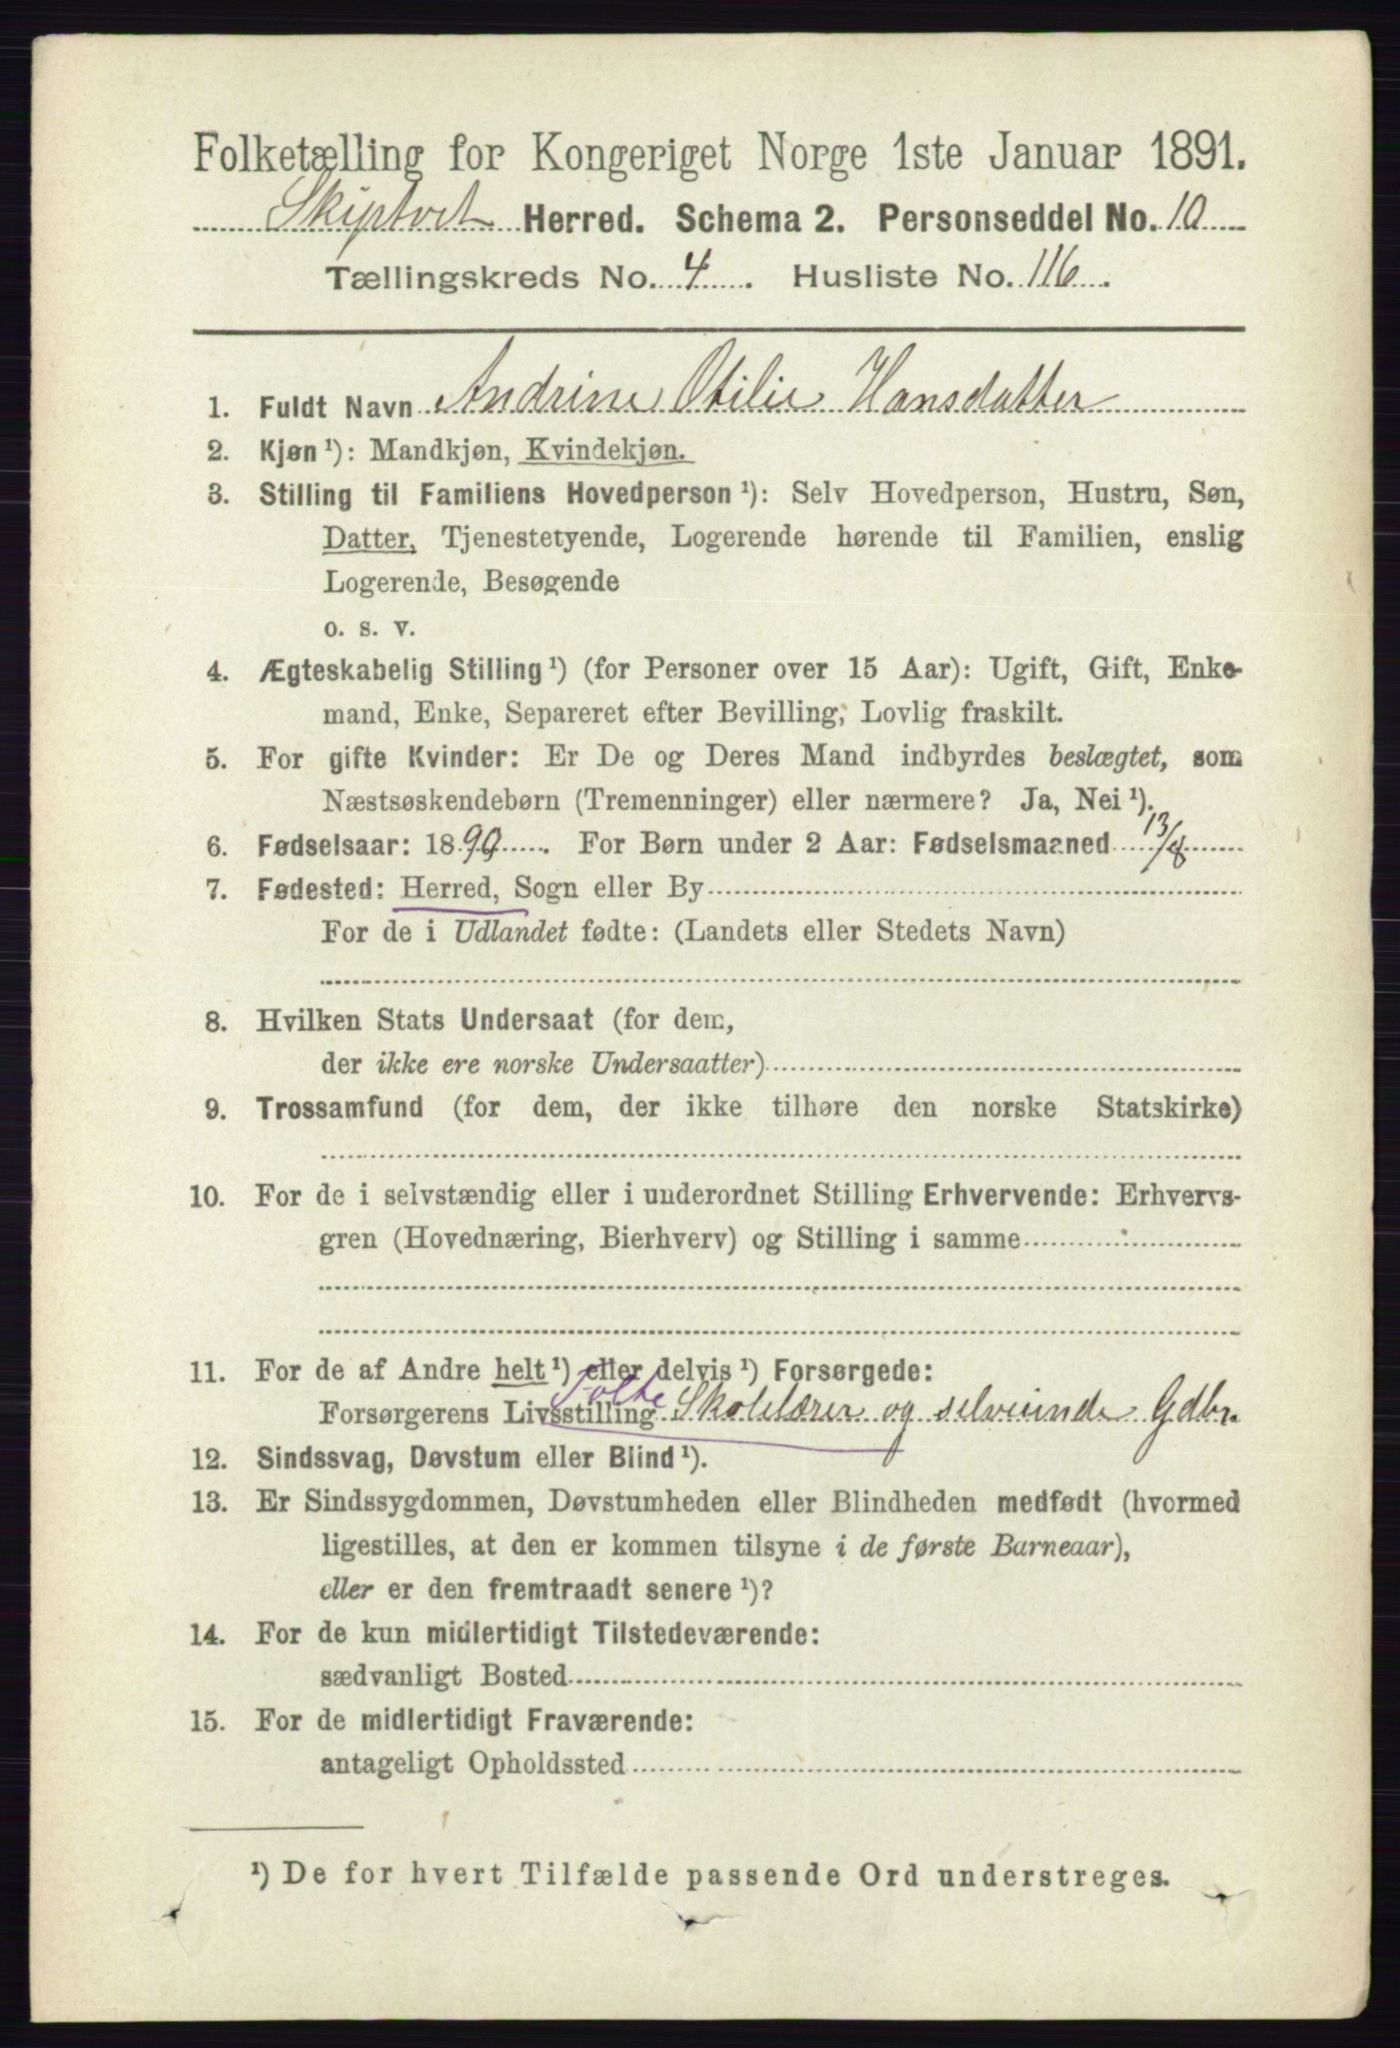 Folketælling for Kongeriget Norge 1ste Januar 1891.
Skiptvet Herred. Schema 2. Personseddel No. 10
Tællingskreds No. 4. Husliste No. 116.
1. Fuldt Navn Andrine Otilie Hansdatter
2. Kjøn¹): Mandkjøn, Kvindekjøn.
3. Stilling til Familiens Hovedperson¹): Selv Hovedperson, Hustru, Søn,
Datter, Tjenestetyende, Logerende hørende til Familien, enslig
Logerende, Besøgende
o. s. v.
4. Ægteskabelig Stilling¹) (for Personer over 15 Aar): Ugift, Gift, Enke-
mand, Enke, Separeret efter Bevilling, Lovlig fraskilt.
5. For gifte Kvinder: Er De og Deres Mand indbyrdes beslægtet, som
Næstsøskendebørn (Tremenninger) eller nærmere? Ja, Nei¹).
6. Fødselsaar: 1890. For Børn under 2 Aar: Fødselsmaaned 13/8
7. Fødested: Herred, Sogn eller By
For de i Udlandet fødte: (Landets eller Stedets Navn)
8. Hvilken Stats Undersaat (for dem,
der ikke ere norske Undersaatter)
9. Trossamfund (for dem, der ikke tilhøre den norske Statskirke)
10. For de i selvstændig eller i underordnet Stilling Erhvervende: Erhvervs-
gren (Hovednæring, Bierhverv) og Stilling i samme
11. For de af Andre helt¹) eller delvis¹) Forsørgede:
Forsørgerens Livsstilling Skolelærer og selveiende Gdbr.
12. Sindssvag, Døvstum eller Blind¹).
13. Er Sindssygdommen, Døvstumheden eller Blindheden medfødt (hvormed
ligestilles, at den er kommen tilsyne i de første Barneaar),
eller er den fremtraadt senere¹)?
14. For de kun midlertidigt Tilstedeværende:
sædvanligt Bosted
15. For de midlertidigt Fraværende:
antageligt Opholdssted
¹) De for hvert Tilfælde passende Ord understreges.